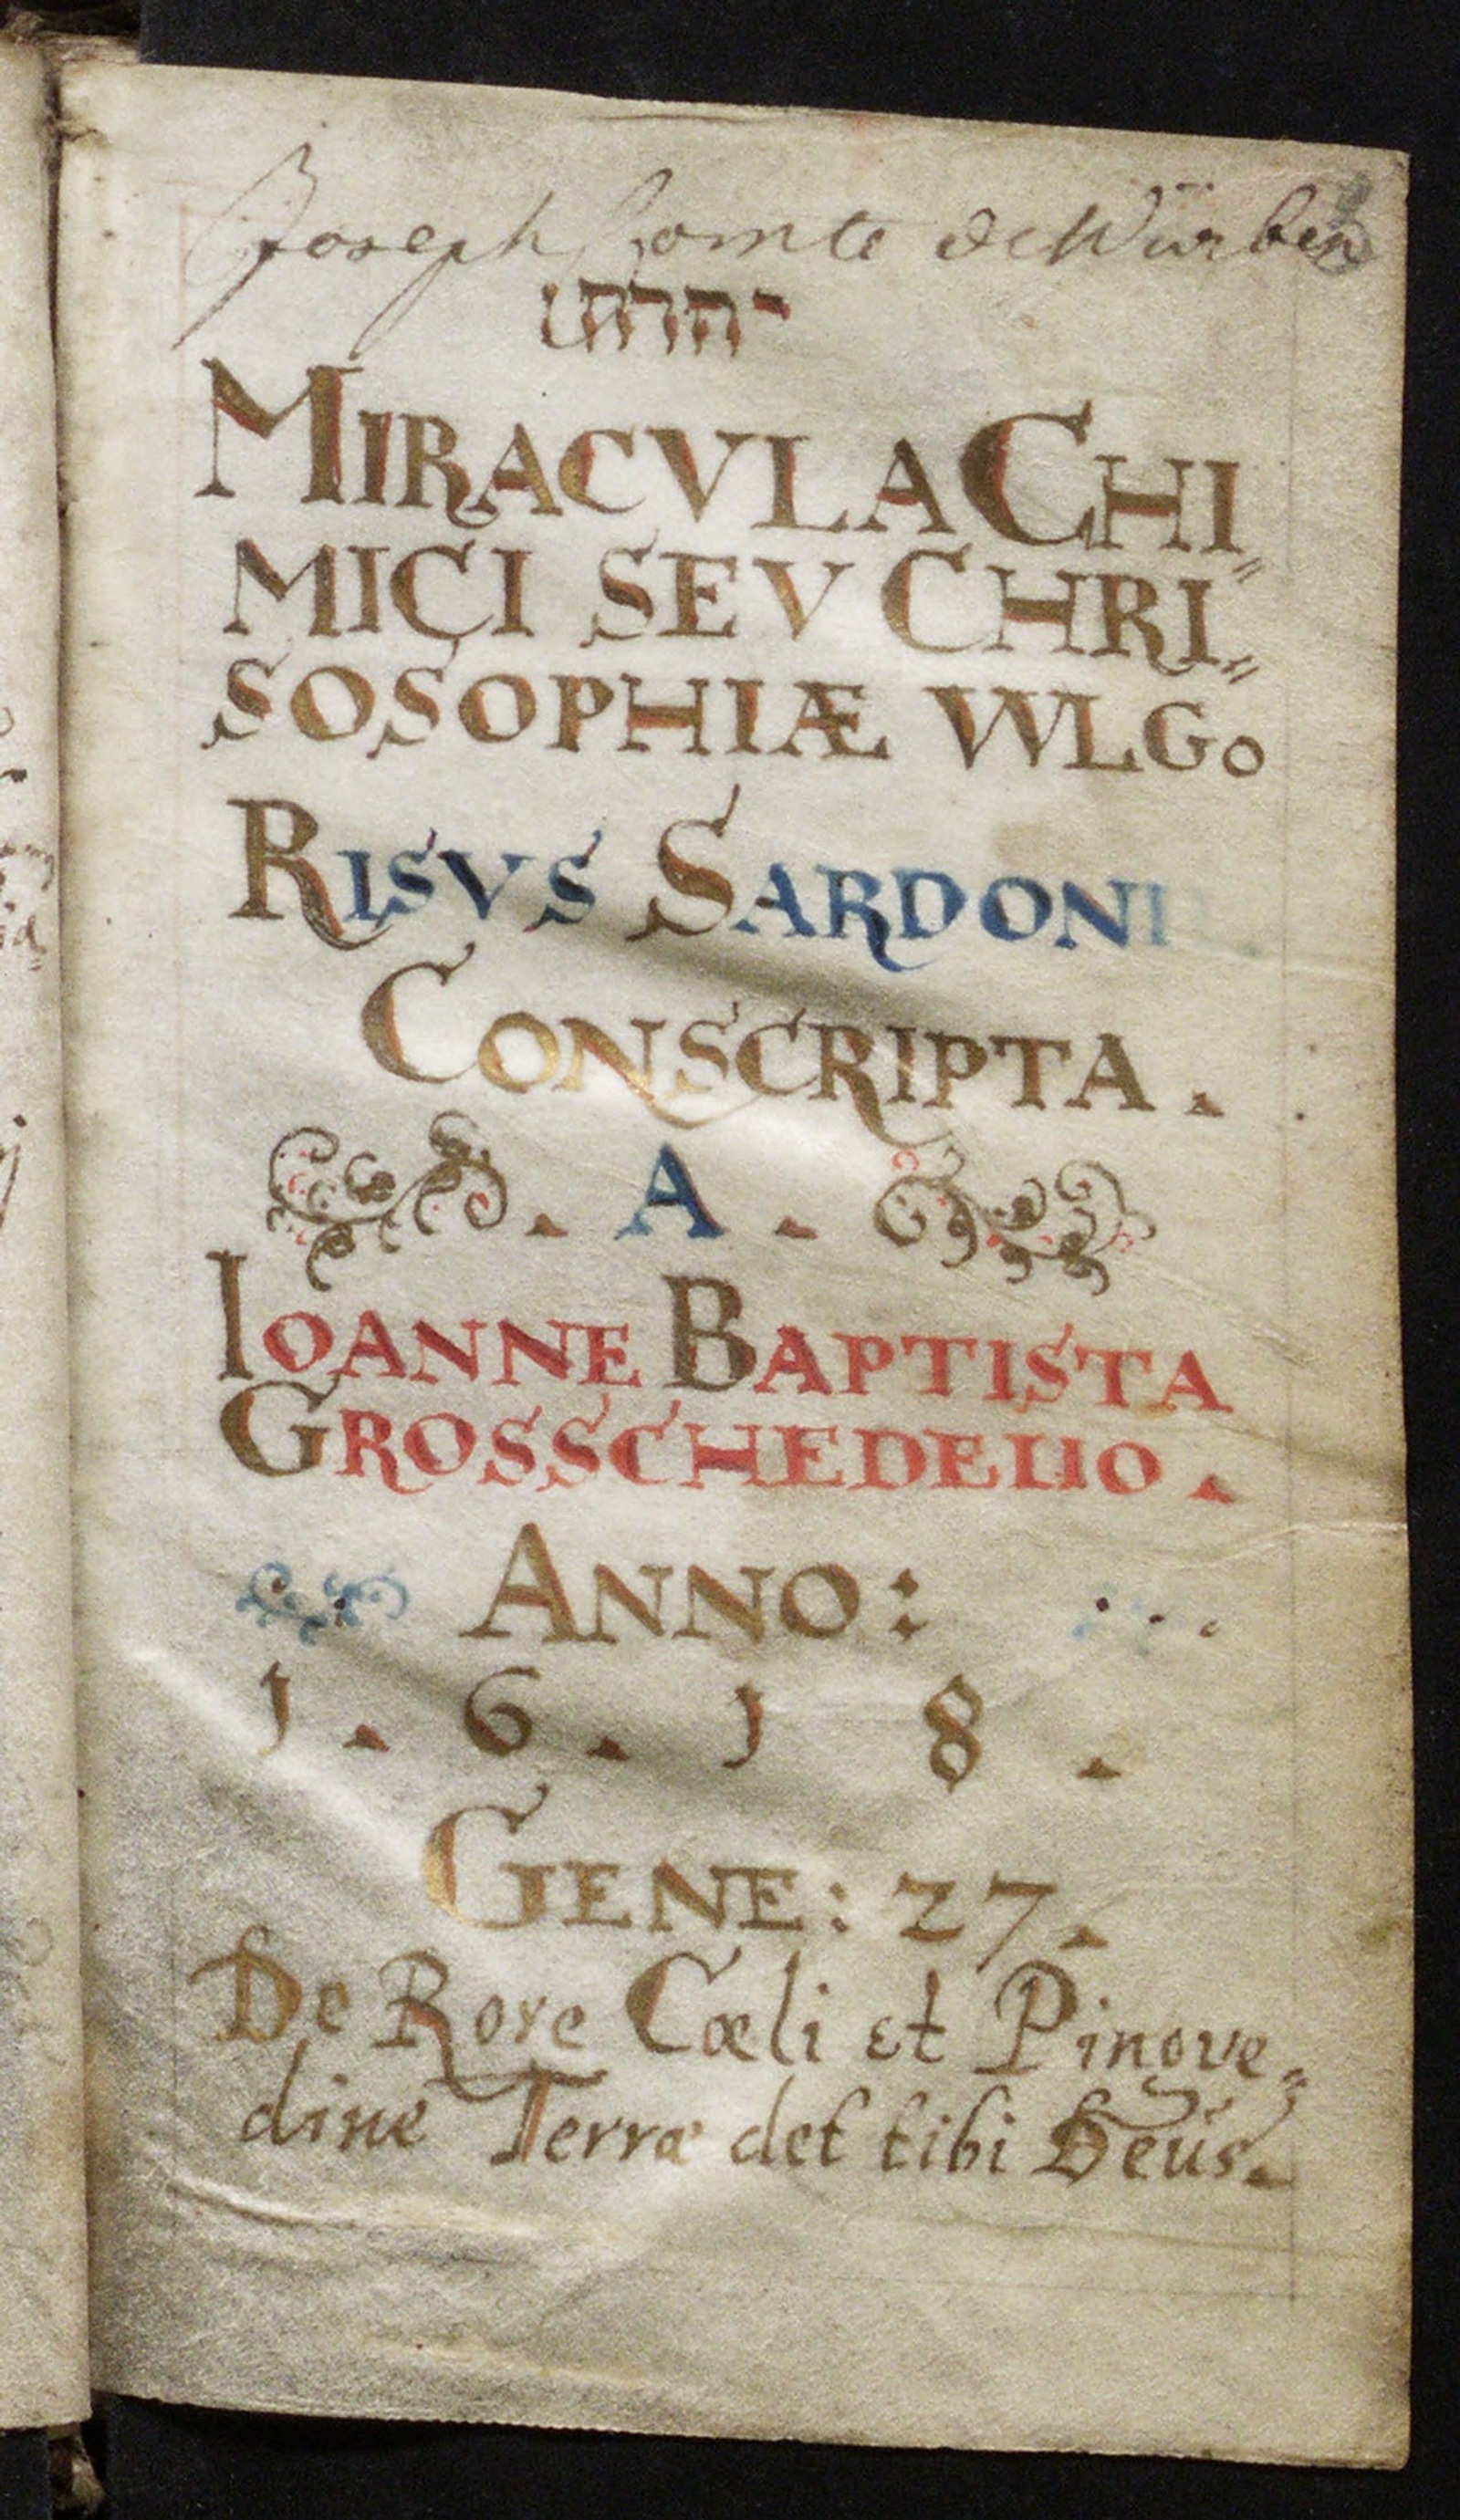 Joseph Comte de Würben
MIRACVLA CHI„
MICI SEV CHRI„
SOSOPHIÆ VVLGo
RISVS SARDONI
CONSCRIPTA.
. A .
IOANNE BAPTISTA
GROSSCHEDELIO.
ANNO:
1 . 6 . 1 8 .
GENE: 27.
De Rore Cœli et Pingve„
dine Terræ det tibi Deus.